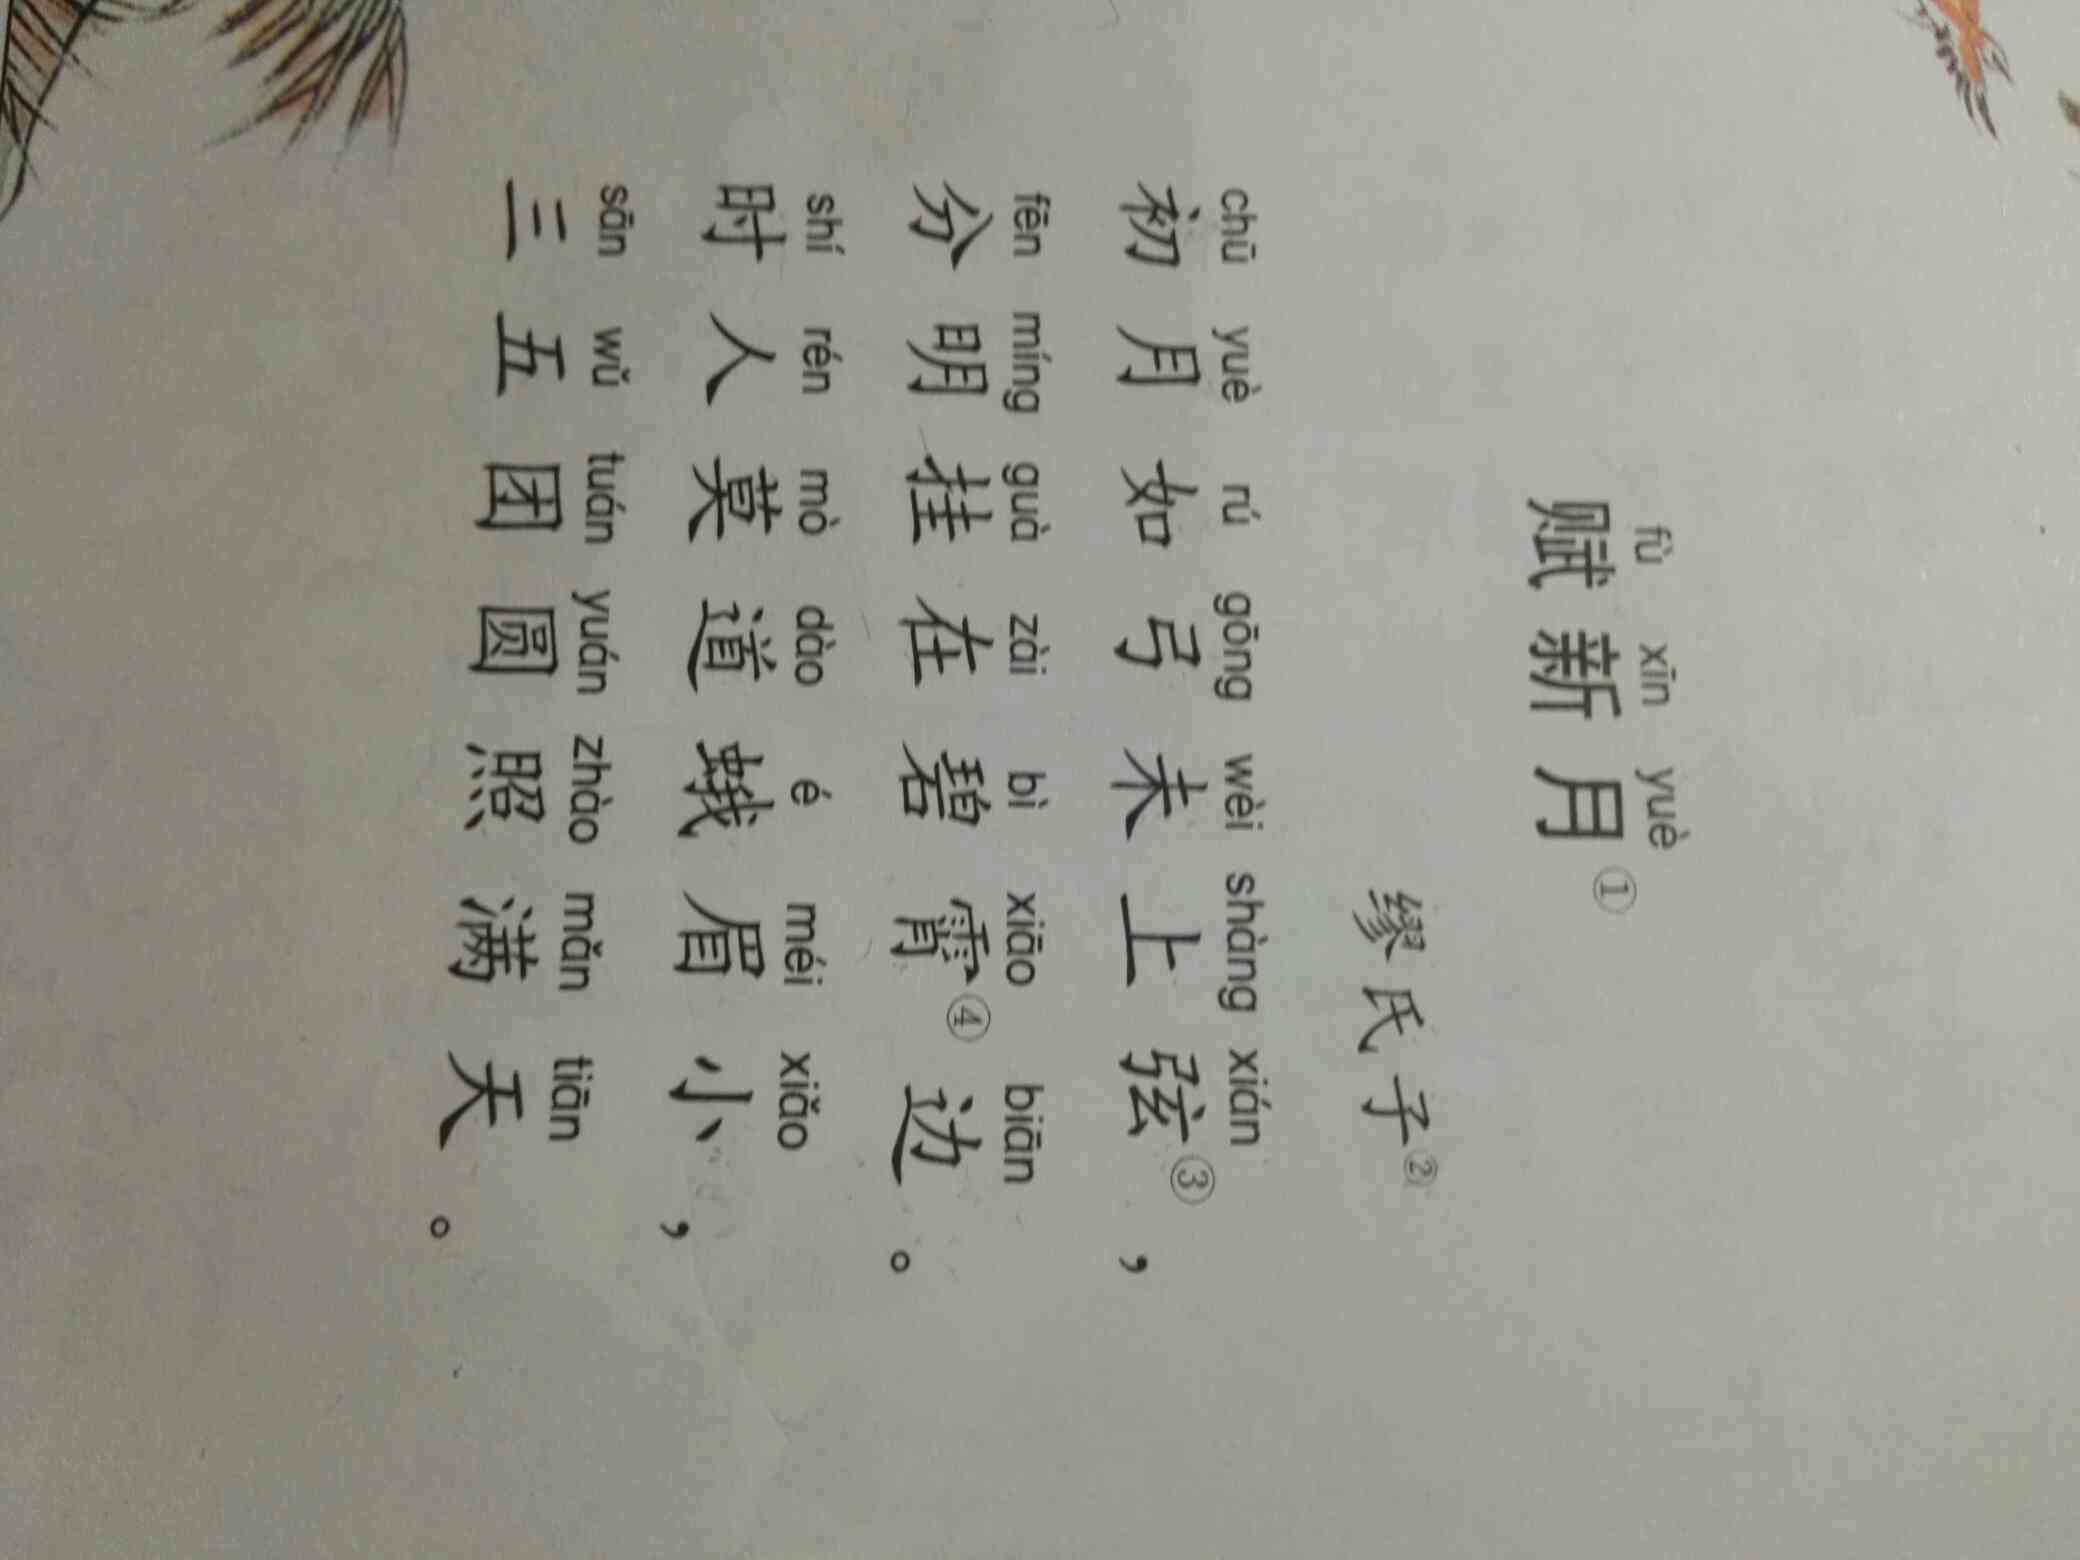 fù xīn yuè
赋新月①
缪氏子②
chū yuè rú gōng wèi shàng xián
初月如弓未上弦③，
fēn míng guà zài bì xiāo biān
分明挂在碧霄④边。
shí rén mò dào é méi xiǎo
时人莫道蛾眉小，
sān wǔ tuán yuán zhào mǎn tiān
三五团圆照满天。